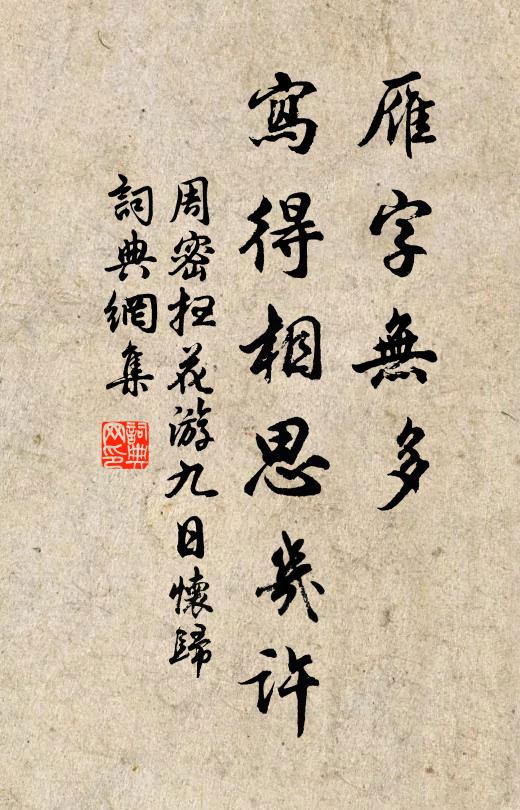 雁字無多
寫得相思幾許
周密扫花游九日懷歸
詞典網集
詞典網印